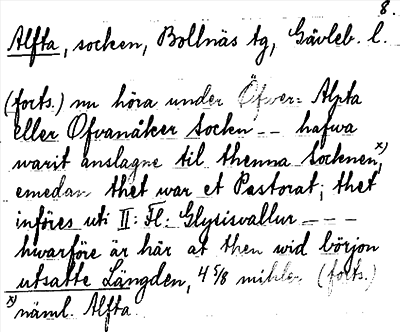 8.
Alfta, socken, Bollnäs tg, Gävleb. l.
(forts.) nu höra under Öfwer= Alpta
eller Ofvanåker Socken -- hafwa
warit anslagne til thenna Socknen,x)
emedan thet war et Pastorat; thet
införes uti II: Fl: Glysisvallur ---
hwarföre är här at then wid början
utsatte Längden, 4 5/8 mihler (forts.)
x) näml. Alfta.